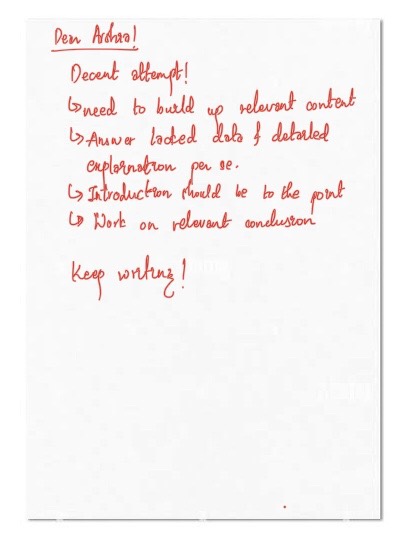 Dear
Decent attempt!
↳ need to build up relevant content
↳ Answer lacked data & detailed
explanation per se.
↳ Introduction should be to the point
↳ Work on relevant conclusion
Keep writing!